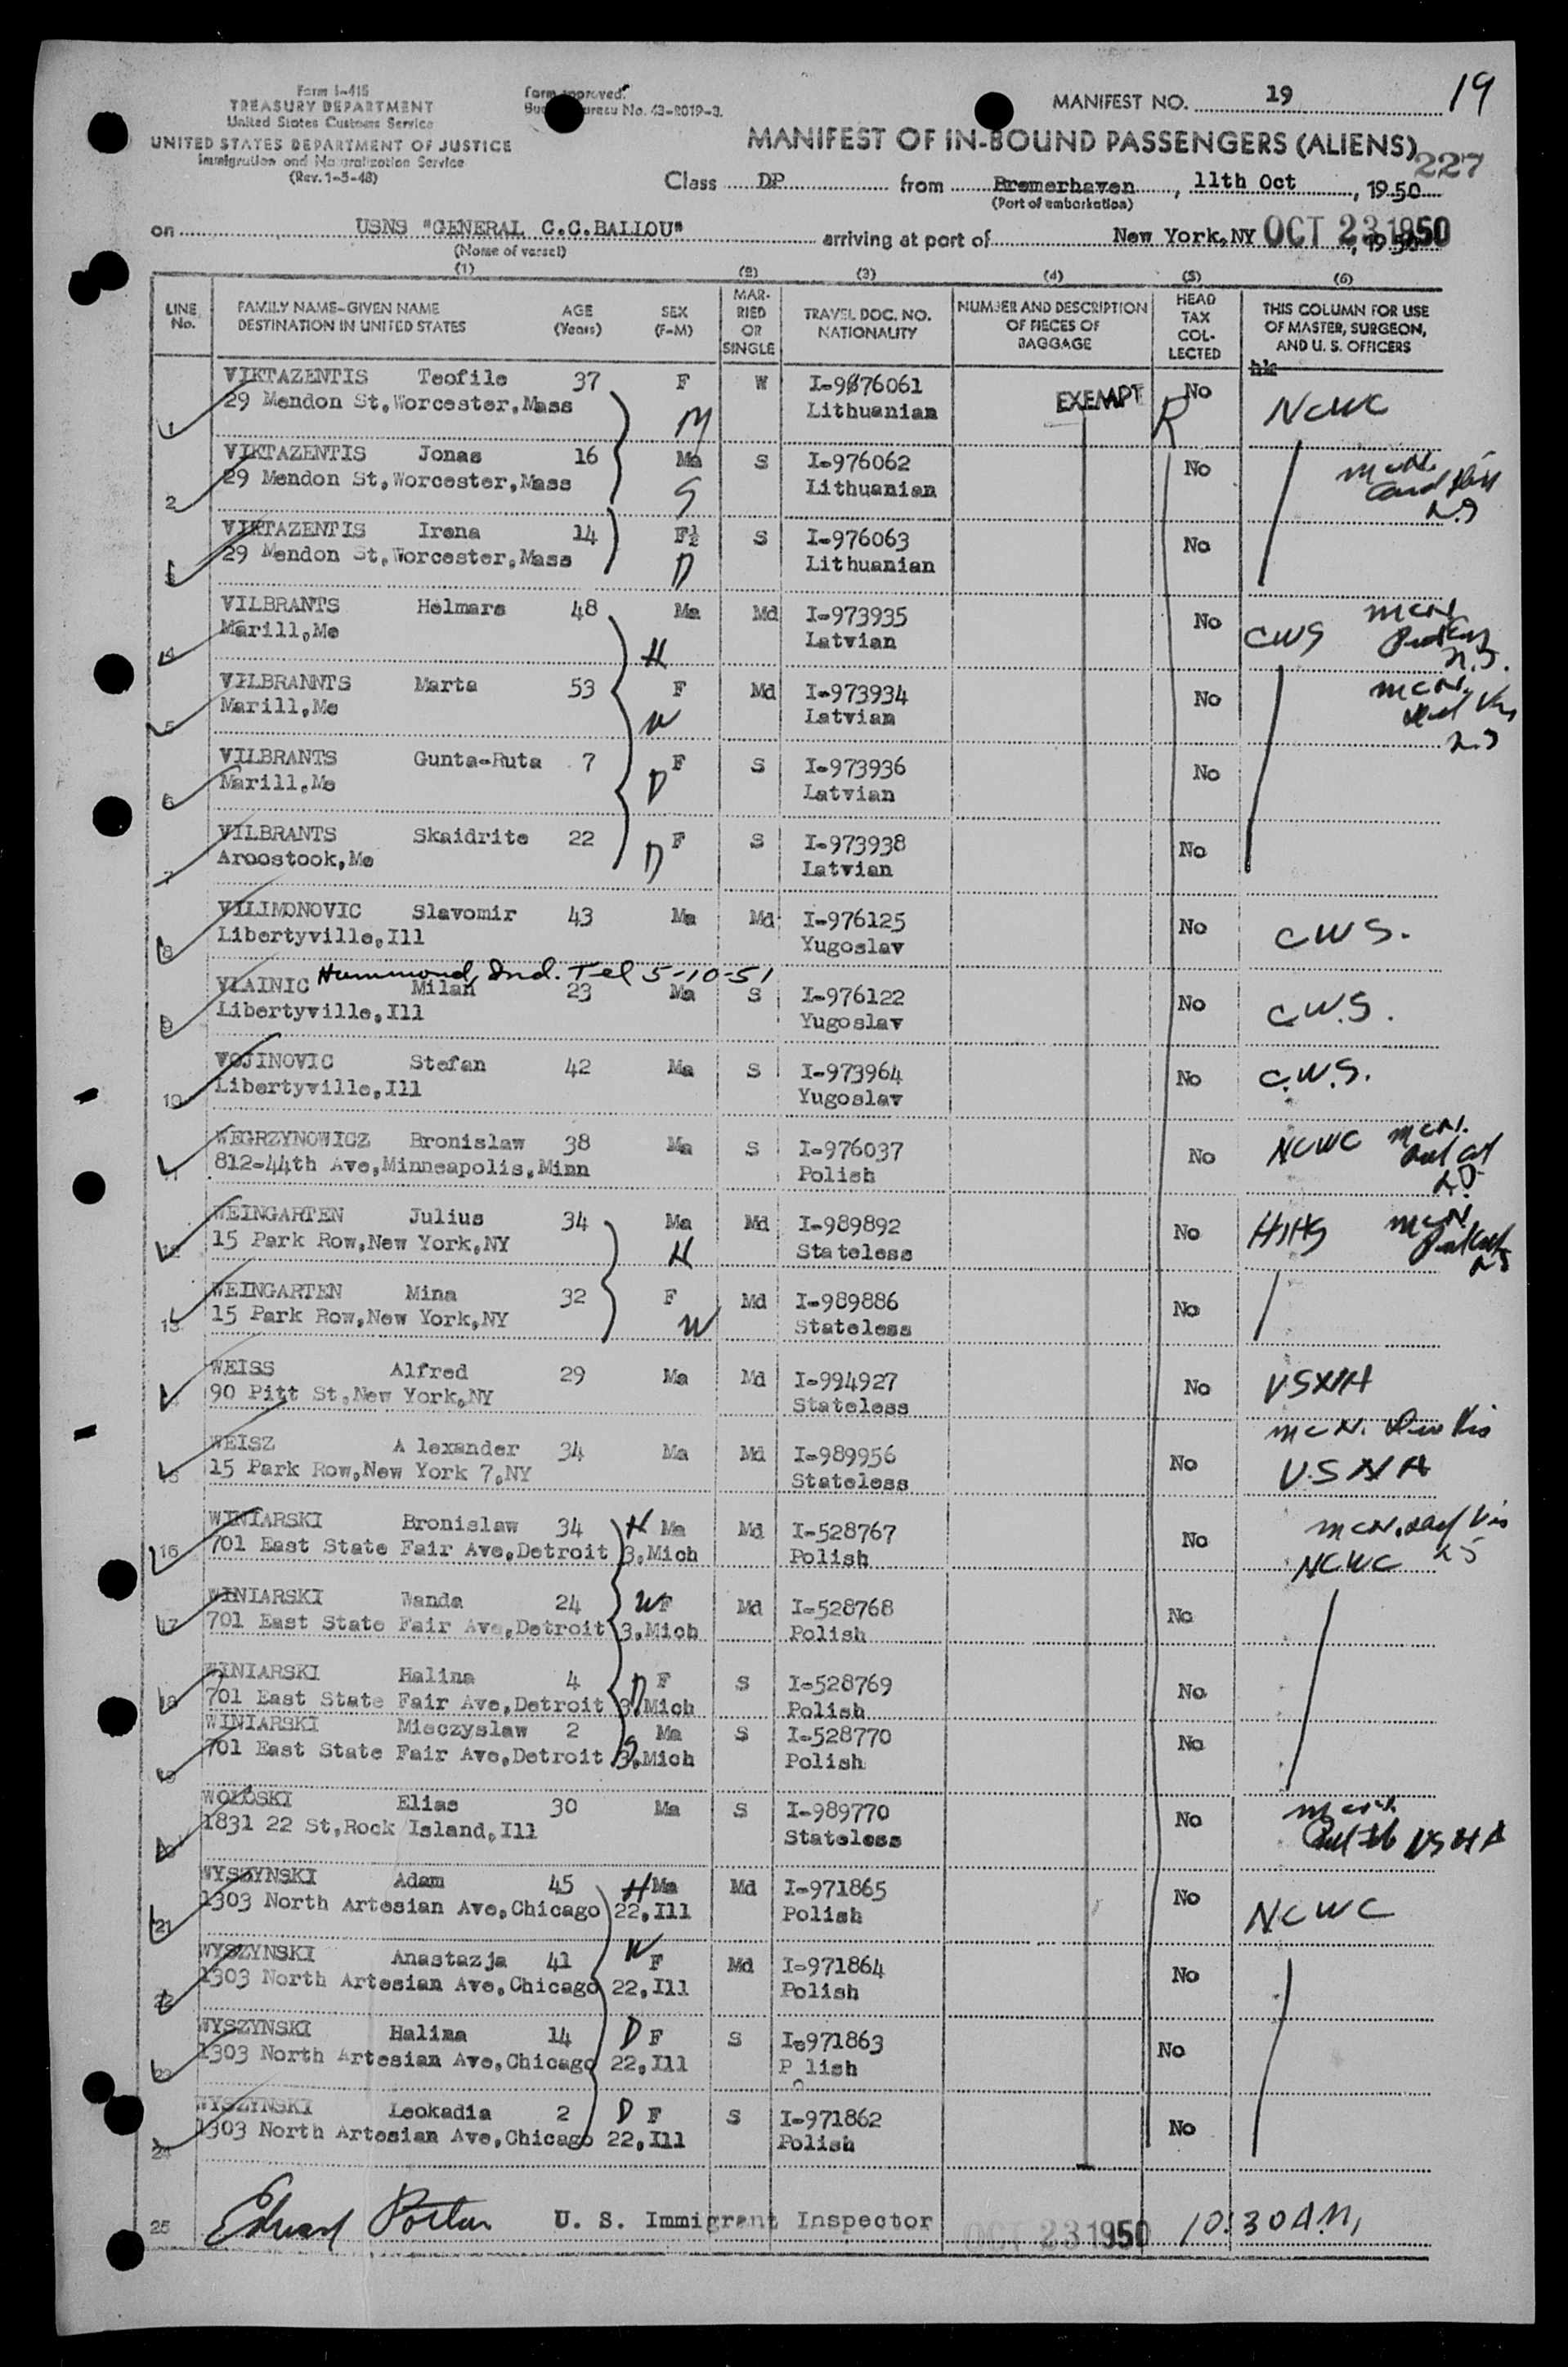 Form I-415
TREASURY DEPARTMENT
United States Customs Service
UNITED STATES DEPARTMENT OF JUSTICE
Immigration and Naturalization Service
(Rev. 1-5-48)
Form approved.
Budget Bureau No. 43-R019-3.
MANIFEST NO. 19
19
MANIFEST OF IN-BOUND PASSENGERS (ALIENS)
227
Class DP from Bremerhaven, 11th Oct, 1950
(Port of embarkation)
on USNS "GENERAL C.C.BALLOU" arriving at port of New York,NY OCT 23 1950, 1950
(Name of vessel)
(1) (2) (3) (4) (5) (6)
LINE No. FAMILY NAME-GIVEN NAME DESTINATION IN UNITED STATES AGE (Years) SEX (F-M) MARRIED OR SINGLE TRAVEL DOC. NO. NATIONALITY NUMBER AND DESCRIPTION OF PIECES OF BAGGAGE HEAD TAX COLLECTED THIS COLUMN FOR USE OF MASTER, SURGEON, AND U. S. OFFICERS
VIKTAZENTIS Teofile 37 F W I-976061 EXEMPT R No NCWC
1 29 Mendon St,Worcester,Mass M Lithuanian
VIKTAZENTIS Jonas 16 Ma S I-976062 No
2 29 Mendon St,Worcester,Mass S Lithuanian
VIKTAZENTIS Irena 14 F½ S I-976063 No
3 29 Mendon St,Worcester,Mass D Lithuanian
VILBRANTS Helmars 48 Ma Md I-973935 No CWS
4 Marill,Me H Latvian
VILBRANNTS Marta 53 F Md I-973934 No
5 Marill,Me W Latvian
VILBRANTS Gunta-Ruta 7 F S I-973936 No
6 Marill,Me D Latvian
VILBRANTS Skaidrite 22 F S I-973938 No
7 Aroostook,Me D Latvian
VILIMONOVIC Slavomir 43 Ma Md I-976125 No CWS.
8 Libertyville,Ill Yugoslav
Hammond, Ind. Tel 5-10-51
VLAINIC Milan 23 Ma S I-976122 No C.W.S.
9 Libertyville,Ill Yugoslav
VOJINOVIC Stefan 42 Ma S I-973964 No C.W.S.
10 Libertyville,Ill Yugoslav
WEGRZYNOWICZ Bronislaw 38 Ma S I-976037 No NCWC
11 812-44th Ave,Minneapolis,Minn Polish
WEINGARTEN Julius 34 Ma Md I-989892 No HIAS
12 15 Park Row,New York,NY H Stateless
WEINGARTEN Mina 32 F Md I-989886 No
13 15 Park Row,New York,NY W Stateless
WEISS Alfred 29 Ma Md I-994927 No USNA
14 90 Pitt St,New York,NY Stateless
WEISZ A lexander 34 Ma Md I-989956 No USNA
15 15 Park Row,New York 7,NY Stateless
WINIARSKI Bronislaw 34 H Ma Md I-528767 No
16 701 East State Fair Ave,Detroit 3,Mich Polish NCWC
WINIARSKI Wanda 24 W F Md I-528768 No
17 701 East State Fair Ave,Detroit 3,Mich Polish
WINIARSKI Halina 4 D F S I-528769 No
18 701 East State Fair Ave,Detroit 3,Mich Polish
WINIARSKI Mieczyslaw 2 Ma S I-528770 No
19 701 East State Fair Ave,Detroit 3,Mich S Polish
WOLOSKI Elias 30 Ma S I-989770 No
20 1831 22 St,Rock Island,Ill Stateless USNA
WYSZYNSKI Adam 45 H Ma Md I-971865 No NCWC
21 1303 North Artesian Ave,Chicago 22,Ill Polish
WYSZYNSKI Anastazja 41 W F Md I-971864 No
22 1303 North Artesian Ave,Chicago 22,Ill Polish
WYSZYNSKI Halina 14 D F S I-971863 No
23 1303 North Artesian Ave,Chicago 22,Ill Polish
WYSZYNSKI Leokadia 2 D F S I-971862 No
24 1303 North Artesian Ave,Chicago 22,Ill Polish
25 U. S. Immigrant Inspector OCT 23 1950 10:30 A.M.